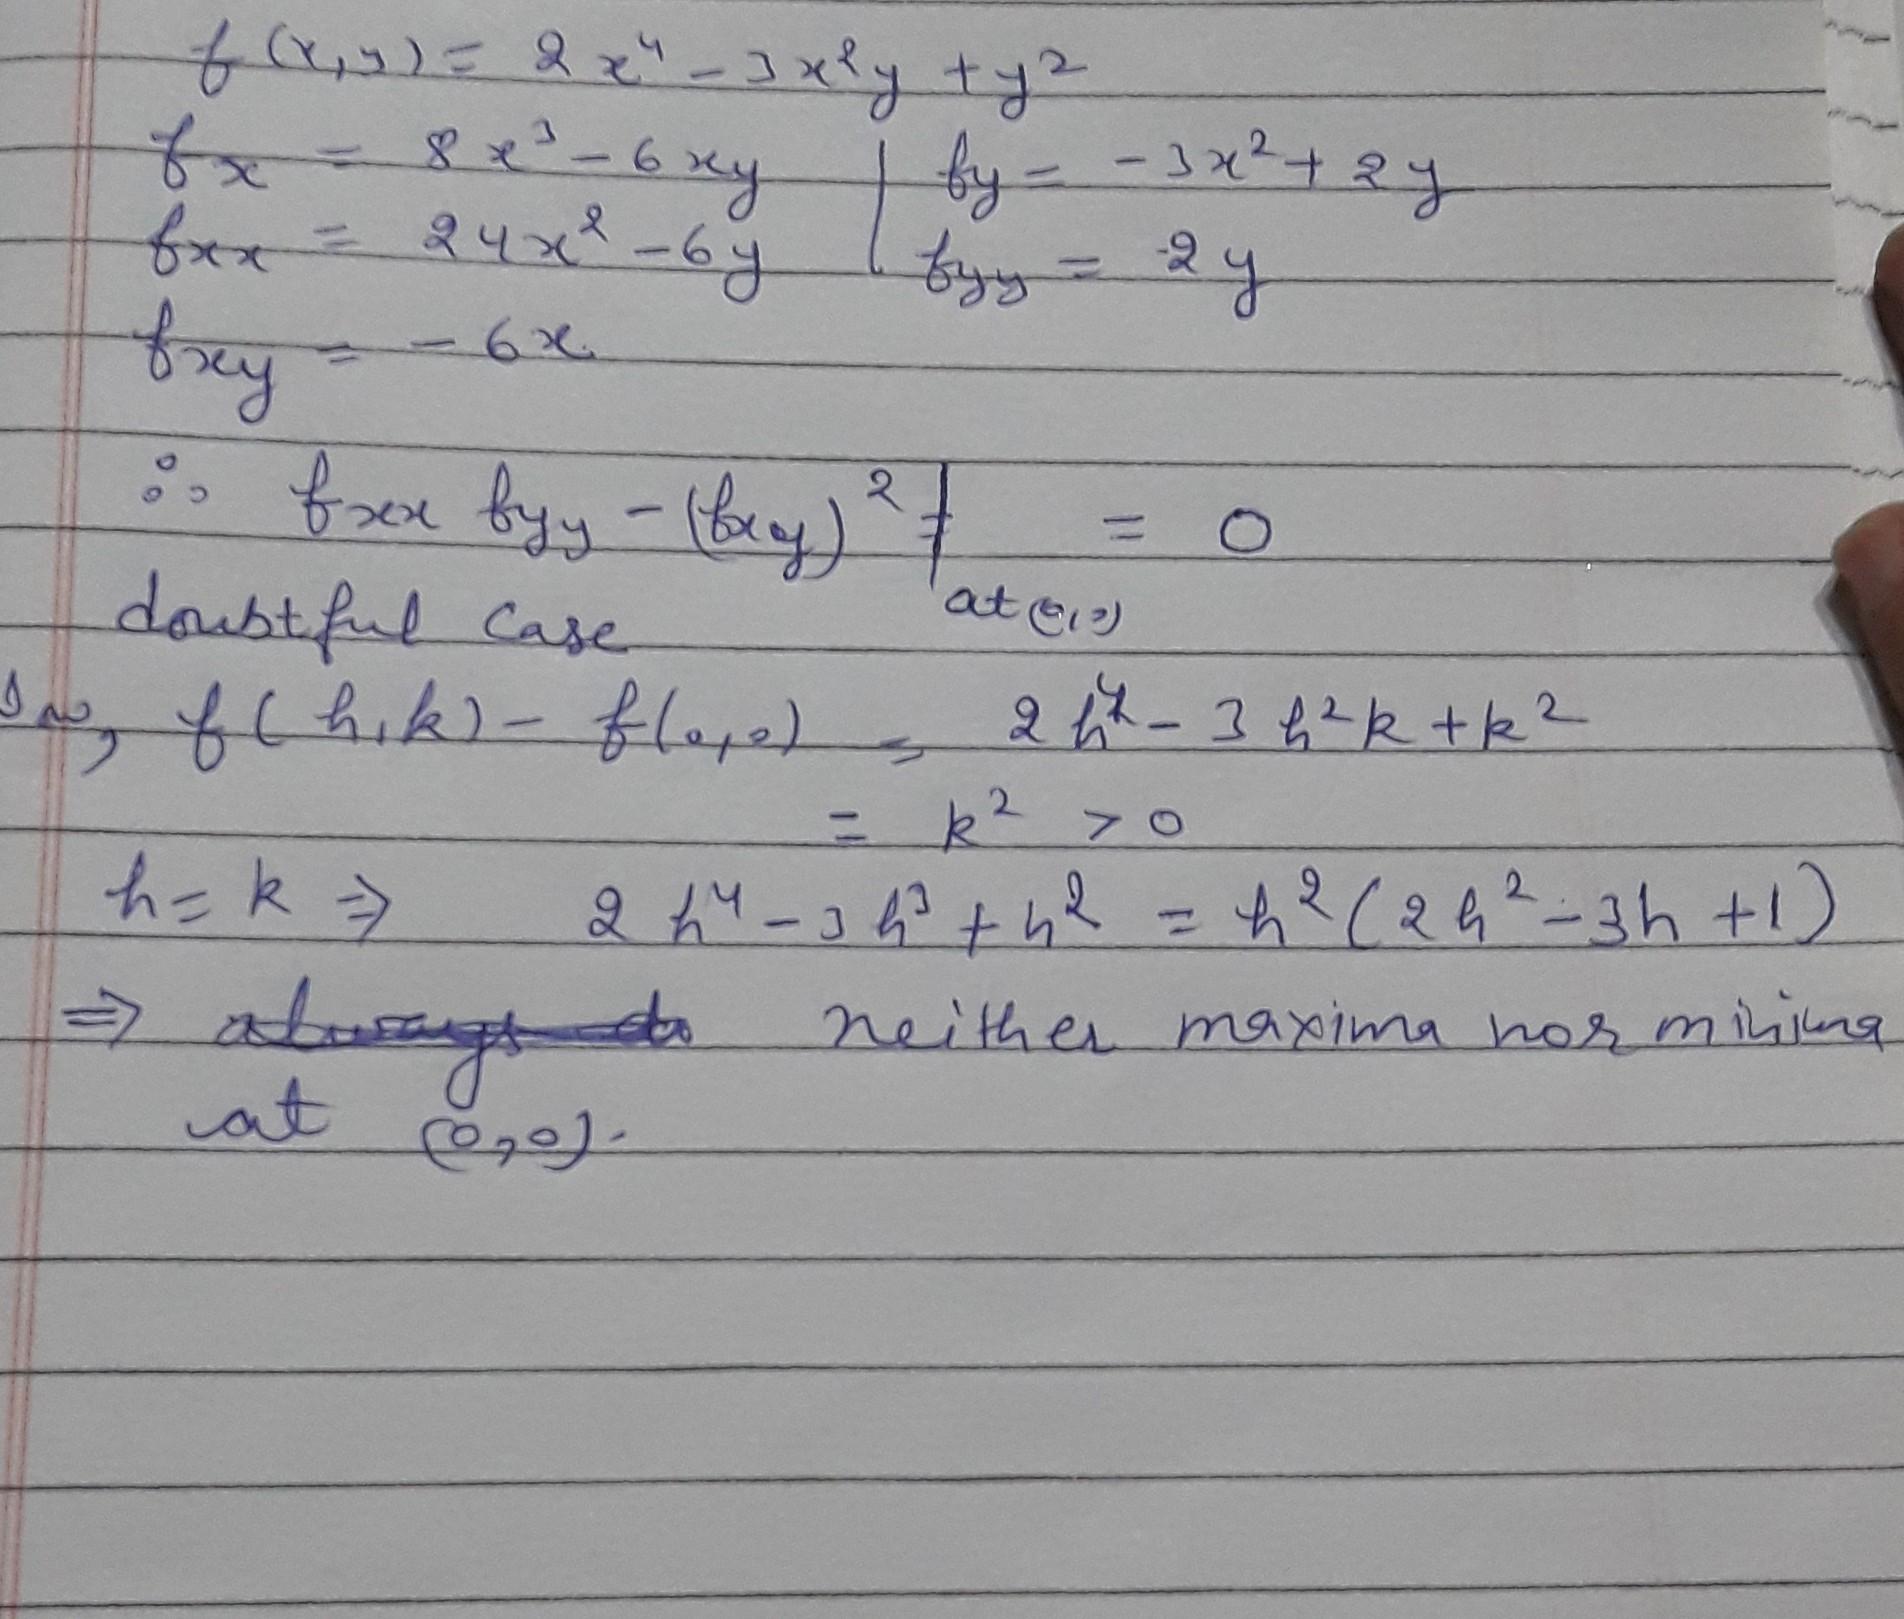 f(x,y) = 2x⁴ - 3x²y + y²
fx = 8x³ - 6xy | fy = -3x² + 2y
fxx = 24x² - 6y | fyy = 2y
fxy = -6x
∴ fxx fyy - (fxy)² | = 0
doubtful case at (0,0)
So, f(h,k) - f(0,0) = 2h⁴ - 3h²k + k²
= k² > 0
h = k ⇒ 2h⁴ - 3h³ + h² = h²(2h² - 3h + 1)
⇒ neither maxima nor minima
at (0,0).